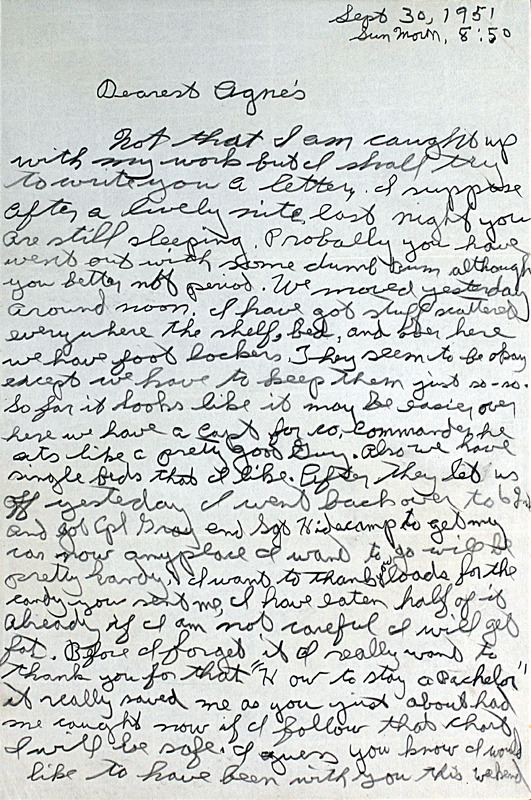 Sept 30, 1951
Sun Morn, 8:50
Dearest Agnes
Not that I am caught up
with my work but I shall try
to write you a letter. I suppose
after a lively nite last night you
are still sleeping. Probally you have
went out with some dumb Bum although
you better not period. We moved yesterday
around noon. I have got stuff scattered
everywhere the shelf, bed, and over here
we have foot lockers. They seem to be okay
except we have to keep them just so-so.
So far it looks like it may be easier over
here we have a Capt for co, commander he
acts like a pretty good Guy. Also we have
single beds that I like. After they let us
off yesterday I went back over to
and got Cpl Gray and Sgt to get my
car now anyplace I want to go will be
pretty handy. I want to thank you loads for the
candy you sent me, I have eaten half of it
already if I am not careful I will get
fat. Before I forget it I really want to
thank you for that "How to stay a Bachelor"
it really saved me as you just about had
me caught now if I follow that chart
I will be safe. I guess you know I would
like to have been with you this weekend